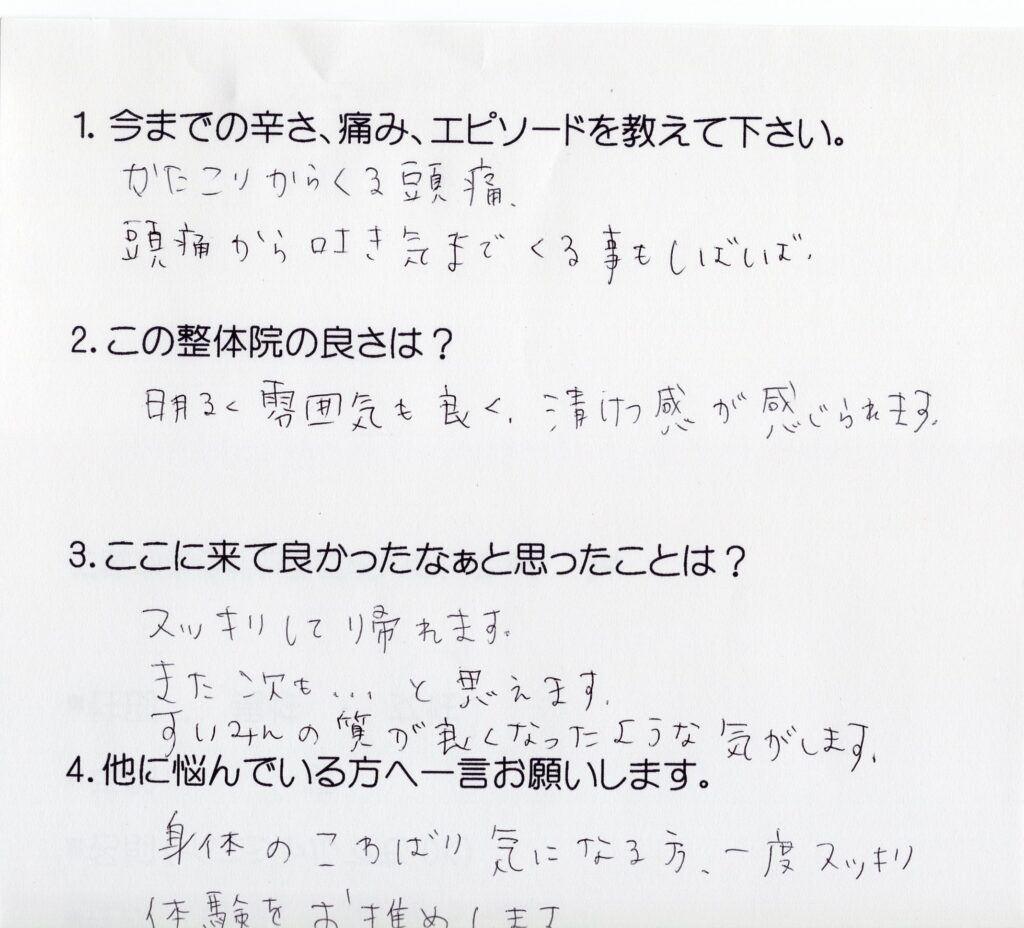 1. 今までの辛さ、痛み、エピソードを教えて下さい。
かたこりからくる頭痛、
頭痛から吐き気までくる事もしばしば。
2. この整体院の良さは？
明るく雰囲気も良く、清けつ感が感じられます。
3. ここに来て良かったなぁと思ったことは？
スッキリして帰れます。
また次も...と思えます。
すいみんの質が良くなったような気がします。
4. 他に悩んでいる方へ一言お願いします。
身体のこわばり気になる方、一度スッキリ
体験をお推めします